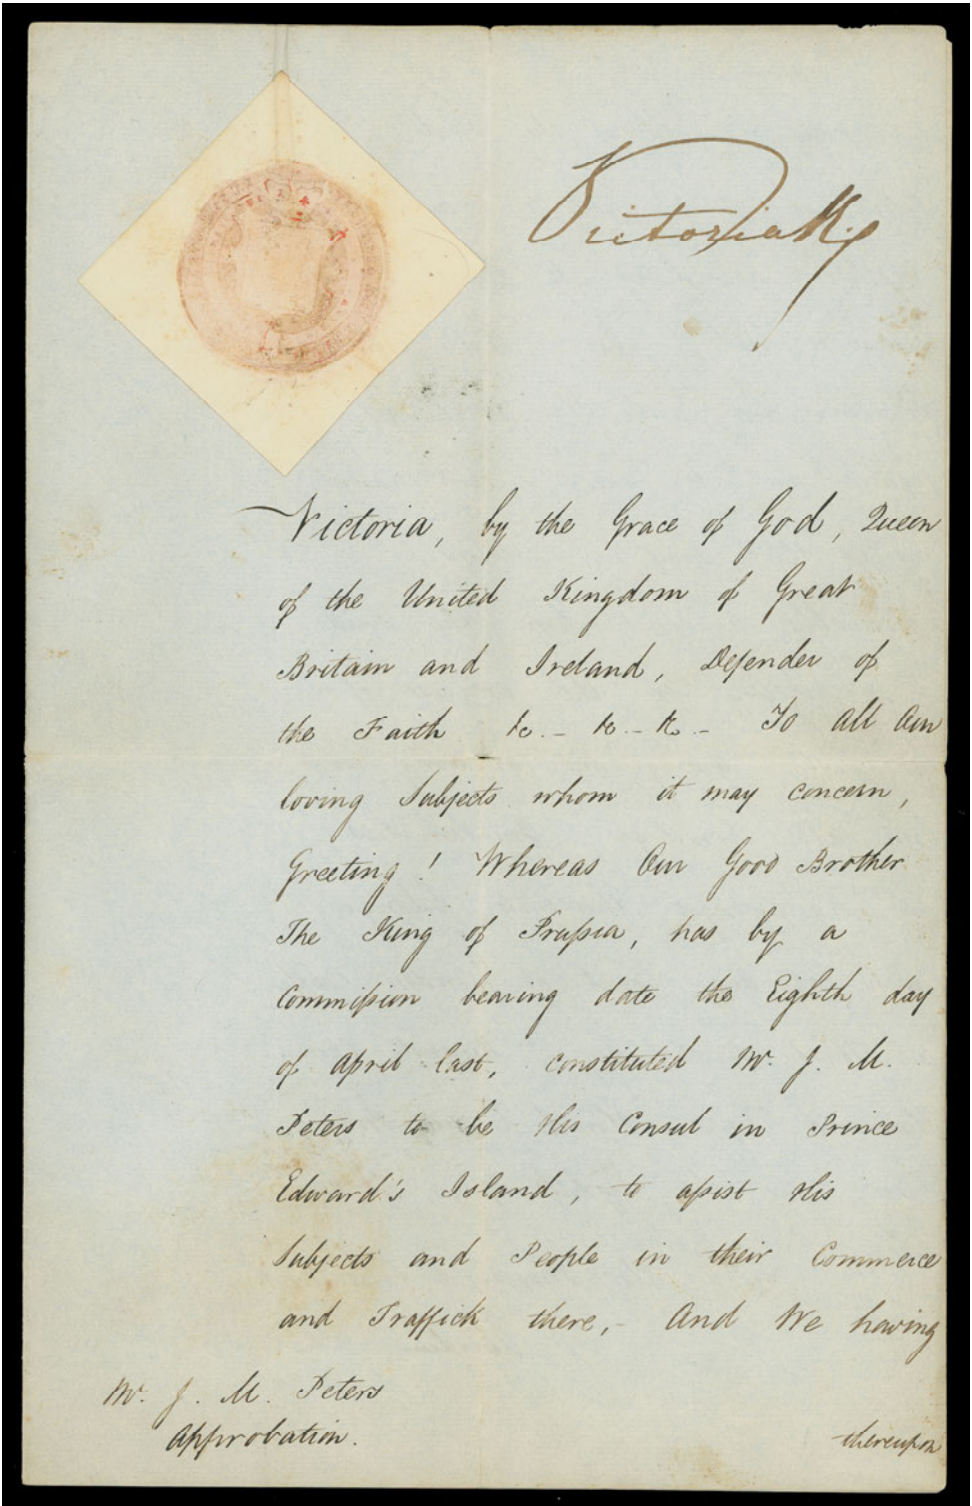 Victoria Rg
Victoria, by the Grace of God, Queen
of the United Kingdom of Great
Britain and Ireland, Defender of
the Faith &c. - &c. - &c. - To all Our
loving Subjects whom it may concern,
Greeting! Whereas Our Good Brother
The King of Prussia, has by a
Commission bearing date the Eighth day
of April last, constituted Mr. J. M.
Peters to be His Consul in Prince
Edward's Island, to assist His
Subjects and People in their Commerce
and Traffick there, - And We having
Mr. J. M. Peters
Approbation.
thereupon